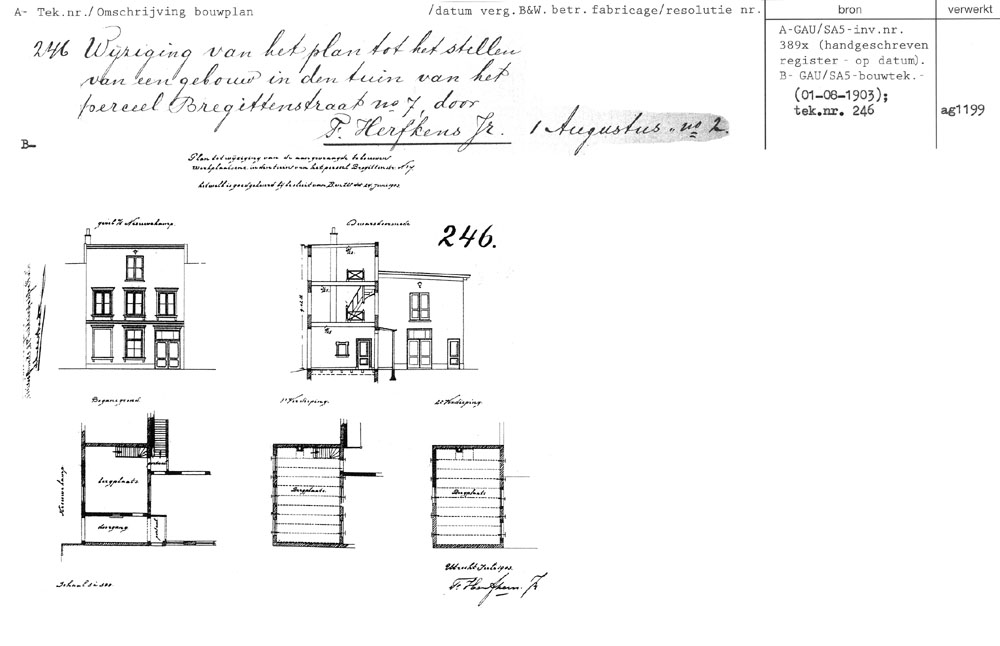 A- Tek.nr./Omschrijving bouwplan /datum verg.B&W. betr. fabricage/resolutie nr. bron verwerkt
246 Wijziging van het plan tot het stellen
van een gebouw in den tuin van het
perceel Bregittenstraat no 7, door
F. Herfkens Jr. 1 Augustus no 2.
A-GAU/SA5-inv.nr.
389x (handgeschreven
register - op datum).
B- GAU/SA5-bouwtek.-
(01-08-1903);
tek.nr. 246
ag1199
B-
Plan tot wijziging van de aangevraagde te bouwen
werkplaats in den tuin van het perceel Bregittenstr. No 7
hetwelk is goedgekeurd bij besluit van B. en W. dd. 24 Juni 1903.
gevel 1/2 Nieuwekamp.
Dwarsdoorsnede
246.
Begane grond
1e Verdieping.
2e Verdieping.
Nieuwekamp
bergplaats
doorgang
Bergplaats
Bergplaats
Schaal 1 à 100.
Utrecht Juli 1903.
F. Herfkens Jr